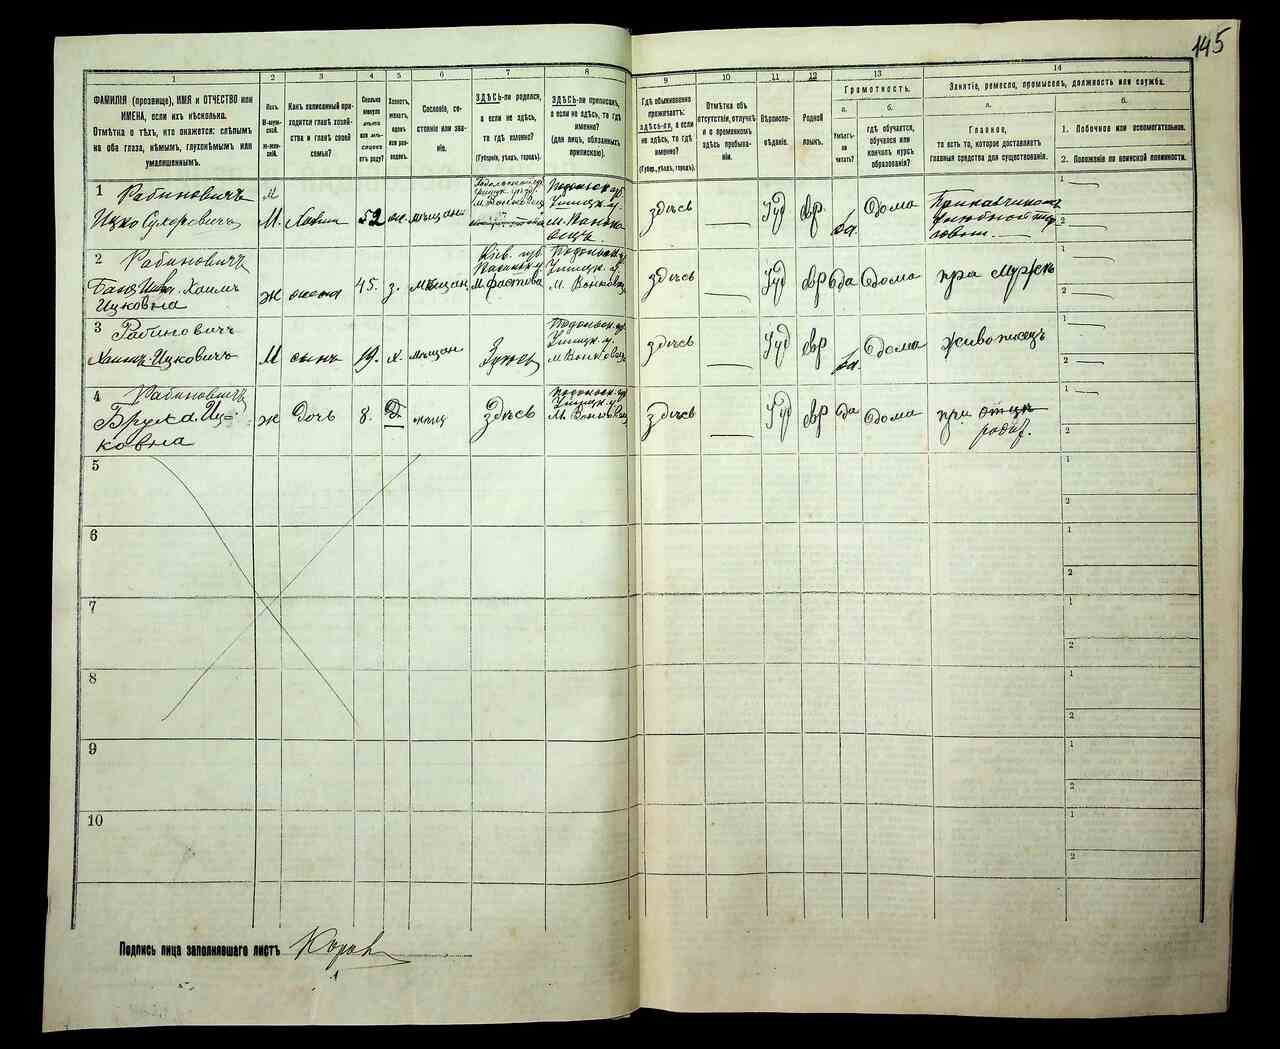 145
1
2
3
4
5
6
7
8
9
10
11
12
13
14
ФАМИЛІЯ (прозвище), ИМЯ и ОТЧЕСТВО или
ИМЕНА, если ихъ нѣсколько.
Отмѣтка о тѣхъ, кто окажется: слѣпымъ
на оба глаза, нѣмымъ, глухонѣмымъ или
умалишеннымъ.
Полъ.
М-муж-
ской.
Ж-жен-
скій.
Какъ записанный при-
ходится главѣ хозяй-
ства и главѣ своей
семьи?
Сколько
минуло
лѣтъ
или мѣ-
сяцевъ
отъ роду?
Холостъ,
женатъ,
вдовъ
или раз-
веденъ.
Сословіе, со-
стояніе или зва-
ніе.
ЗДѢСЬ-ли родился,
а если не здѣсь,
то гдѣ именно?
(Губернія, уѣздъ, городъ).
ЗДѢСЬ-ли приписанъ,
а если не здѣсь, то гдѣ
именно?
(для лицъ, обязанныхъ
припискою).
Гдѣ обыкновенно
проживаетъ:
здѣсь-ли, а если
не здѣсь, то гдѣ
именно?
(Губер., уѣздъ, городъ).
Отмѣтка объ
отсутствіи, отлучкѣ
и о временномъ
здѣсь пребыва-
ніи.
Вѣроиспо-
вѣданіе.
Родной
языкъ.
Грамотность.
а.
Умѣетъ-
ли
читать?
б.
гдѣ обучается,
обучался или
кончилъ курсъ
образованія?
Занятіе, ремесло, промыселъ, должность или служба.
а.
Главное,
то есть то, которое доставляетъ
главныя средства для существованія.
б.
1. Побочное или вспомогательное.
2. Положеніе по воинской повинности.
1
Рабиновичъ
Ицко Сухеровичъ
М
М.
52
же.
мѣщан.
Подольской губ.
Ушицк. уѣзд.
Подольск. губ.
Ушицк. у.
здѣсь
Іуд
евр
да.
Дома
Приказчикомъ
1
2
2
Рабиновичъ
Ицковна
Ж
жена
45.
з.
мѣщан.
Кіев. губ.
м. Фастова
Подольск. гу
Ушицк. у.
м. Вонковец
здѣсь
Іуд
евр
да
Дома
при мужѣ
1
2
3
Рабиновичъ
Хаимъ-Ицковичъ
М
сынъ
19.
х.
мѣщан
Подольск. гу.
Ушицк. у.
м. Вонковец
здѣсь
Іуд
евр
да.
Дома
живописецъ
1
2
4
Рабиновичъ
Бруха Иц-
ковна
ж
Дочь
8.
Д
мѣщ
Здѣсь
Подольск. гу
Ушицк. у.
м. Вонковец
здѣсь
Іуд
евр
да
Дома
при отцѣ
родит.
1
2
5
1
2
6
1
2
7
1
2
8
1
2
9
1
2
10
1
2
Подпись лица заполнявшаго листъ